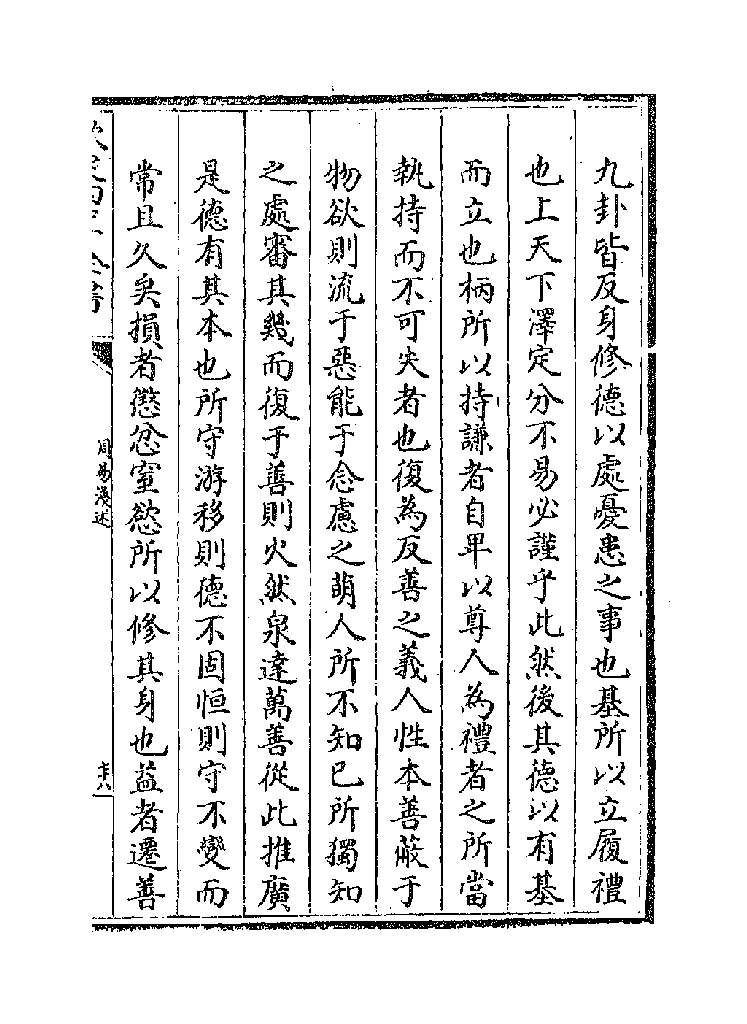 九卦皆反身修德以處憂患之事也基所以立履禮
也上天下澤定分不易必謹乎此然後其德以有基
而立也柄所以持謙者自卑以尊人為禮者之所當
執持而不可失者也復為反善之義人性本善蔽于
物欲則流于惡能于念慮之萌人所不知已所獨知
之處審其幾而復于善則火然泉達萬善從此推廣
是德有其本也所守游移則德不固恒則守不變而
常且久矣損者懲忿窒慾所以修其身也益者遷善
周易淺述